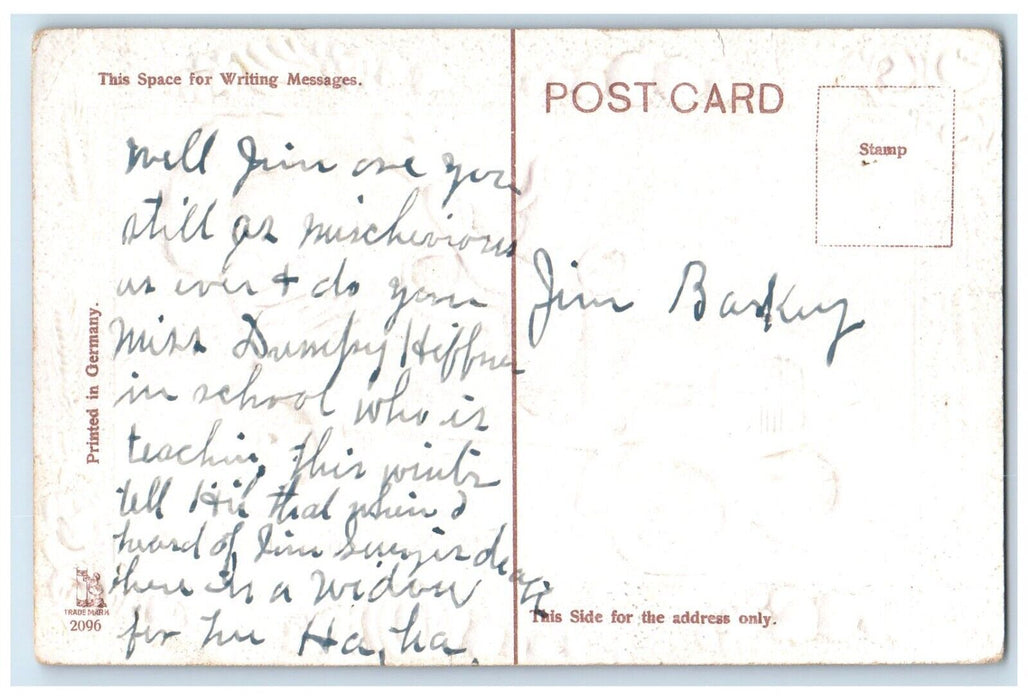 This Space for Writing Messages.
POST CARD
Stamp
Well Jim are you
still as mischevious
as ever & do you
Miss Dumpy Hiffner
in school who is
teaching this winter
tell Him that when I
heard of Jim death
there is a widow
for him Ha, ha.
Jim Barkey
Printed in Germany.
TRADE MARK
2096
This Side for the address only.